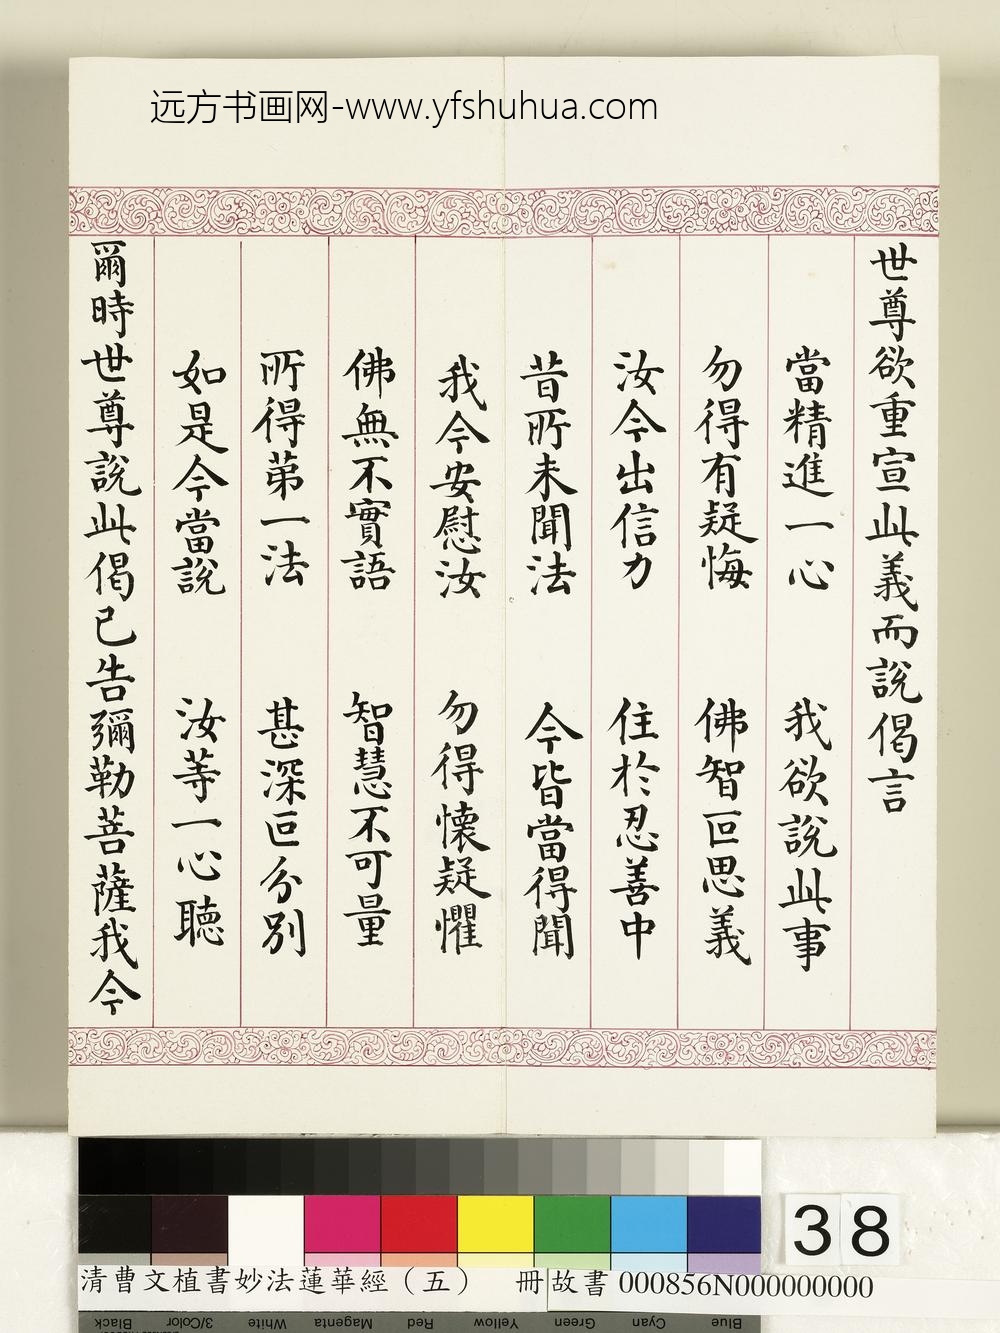 远方书画网-www.yfshuhua.com
世尊欲重宣此義而說偈言
當精進一心 我欲說此事
勿得有疑悔 佛智叵思義
汝今出信力 住於忍善中
昔所未聞法 今皆當得聞
我今安慰汝 勿得懷疑懼
佛無不實語 智慧不可量
所得第一法 甚深叵分別
如是今當說 汝等一心聽
爾時世尊說此偈已告彌勒菩薩我今
38
清曹文植書妙法蓮華經（五） 冊 故書 000856N000000000
Black 3/Color White Magenta Red Yellow Green Cyan Blue